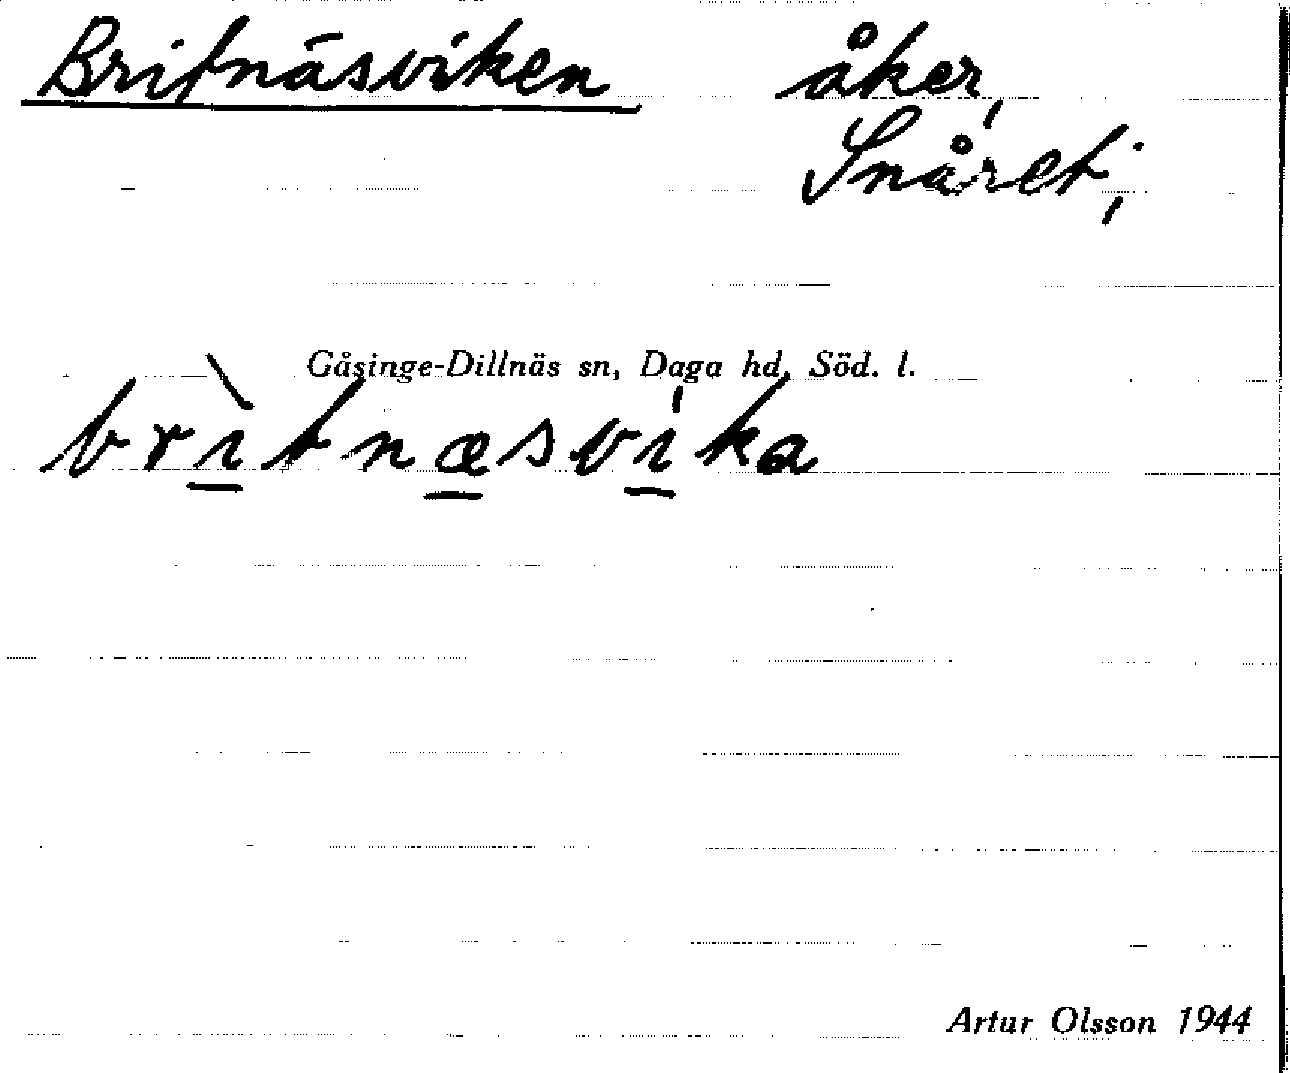 Britnäsviken åker,
Snåret;
Gåsinge-Dillnäs sn, Daga hd, Söd. l.
brìtnæsvíka
Artur Olsson 1944